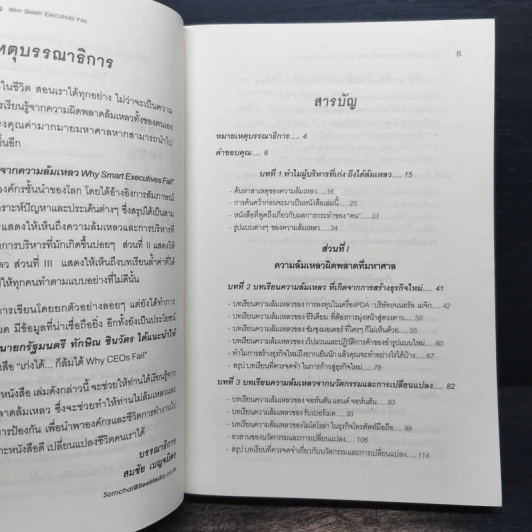 Why Smart Executives Fail
เหตุบรรณาธิการ
ในชีวิต สอนเราได้ทุกอย่าง ไม่ว่าจะเป็นความ
การเรียนรู้จากความผิดพลาดล้มเหลวทั้งของตนเอง
องคุณค่ามากมายมหาศาลหากสามารถนำไป
ขึ้นอีก
จากความล้มเหลว Why Smart Executives Fail"
องค์กรชั้นนำของโลก โดยได้อ้างอิงการสัมภาษณ์
คราะห์ปัญหาและประเด็นต่างๆ ซึ่งสรุปได้เป็นสาม
แสดงให้เห็นถึงความล้มเหลวและการบริหารที่
การบริหารที่มักเกิดขึ้นบ่อยๆ ส่วนที่ II แสดงให้
ลว ส่วนที่ III แสดงให้เห็นถึงบทเรียนล้ำค่าที่ได้
ให้ทุกคนทำตามแบบอย่างที่ไม่ดีนั้น
การเขียนโดยยกตัวอย่างลอยๆ แต่ยังได้ทำการ
ยด มีข้อมูลที่น่าเชื่อถือยิ่ง อีกทั้งยังเป็นประโยชน์
นายกรัฐมนตรี ทักษิณ ชินวัตร ได้แนะนำให้
สือ "เก่งได้... ก็ล้มได้ Why CEOs Fail"
หนังสือ เล่มดังกล่าวนี้ จะช่วยให้ท่านได้เรียนรู้จาก
ลาดล้มเหลว ซึ่งจะช่วยทำให้ท่านไม่ล้มเหลวและ
การป้องกัน เพื่อนำพาองค์กรและชีวิตการทำงานไป
าะหนังสือดี เปลี่ยนแปลงชีวิตคนเราได้
บรรณาธิการ
สมชัย เบญจมิตร
Somchai@BeeMedia.co.th
5
สารบัญ
หมายเหตุบรรณาธิการ..... 4
คำขอบคุณ..... 8
บทที่ 1 ทำไมผู้บริหารที่เก่ง ถึงได้ล้มเหลว..... 15
- ค้นหาสาเหตุของความล้มเหลว.....16
- การค้นคว้าก่อนจะมาเป็นหนังสือเล่มนี้.....21
- หนังสือที่พูดถึงเกี่ยวกับผลการกระทำของ "คน".....33
- รูปแบบต่างๆ ของความล้มเหลว.....34
ส่วนที่ I
ความล้มเหลวผิดพลาดที่มหาศาล
บทที่ 2 บทเรียนความล้มเหลว ที่เกิดจากการสร้างธุรกิจใหม่..... 41
- บทเรียนความล้มเหลวของ การลงทุนในเครื่องPDA :บริษัทเจนเนอรัล เมจิก.....42
- บทเรียนความล้มเหลวของ อีรีเดียม ที่ต้องการมุ่งหน้าสู่ดวงดาว.....
- บทเรียนความล้มเหลวของ ซัมซุงมอเตอร์ ที่ใครๆ ก็ไม่เห็นด้วย.....
- ทำไมการสร้างธุรกิจใหม่ถึงยากเย็นนัก แล้วคุณจะทำอย่างไรได้บ้าง.....
- สรุป บทเรียนที่ควรจดจำ ในการก้าวสู่ธุรกิจใหม่.....79
บทที่ 3 บทเรียนความล้มเหลวจากนวัตกรรมและการเปลี่ยนแปลง..... 82
- บทเรียนความล้มเหลวของ จอห์นสัน แอนด์ จอห์นสัน.....
- บทเรียนความล้มเหลวของ รับเบอร์เมด.....93
- บทเรียนความล้มเหลวของโมโตโลร่า ในธุรกิจโทรศัพท์มือถือ.....
- อวสานของนวัตกรรมและการเปลี่ยนแปลง.....106
- สรุป บทเรียนที่ควรจดจำเกี่ยวกับนวัตกรรมและการเปลี่ยนแปลง.....114